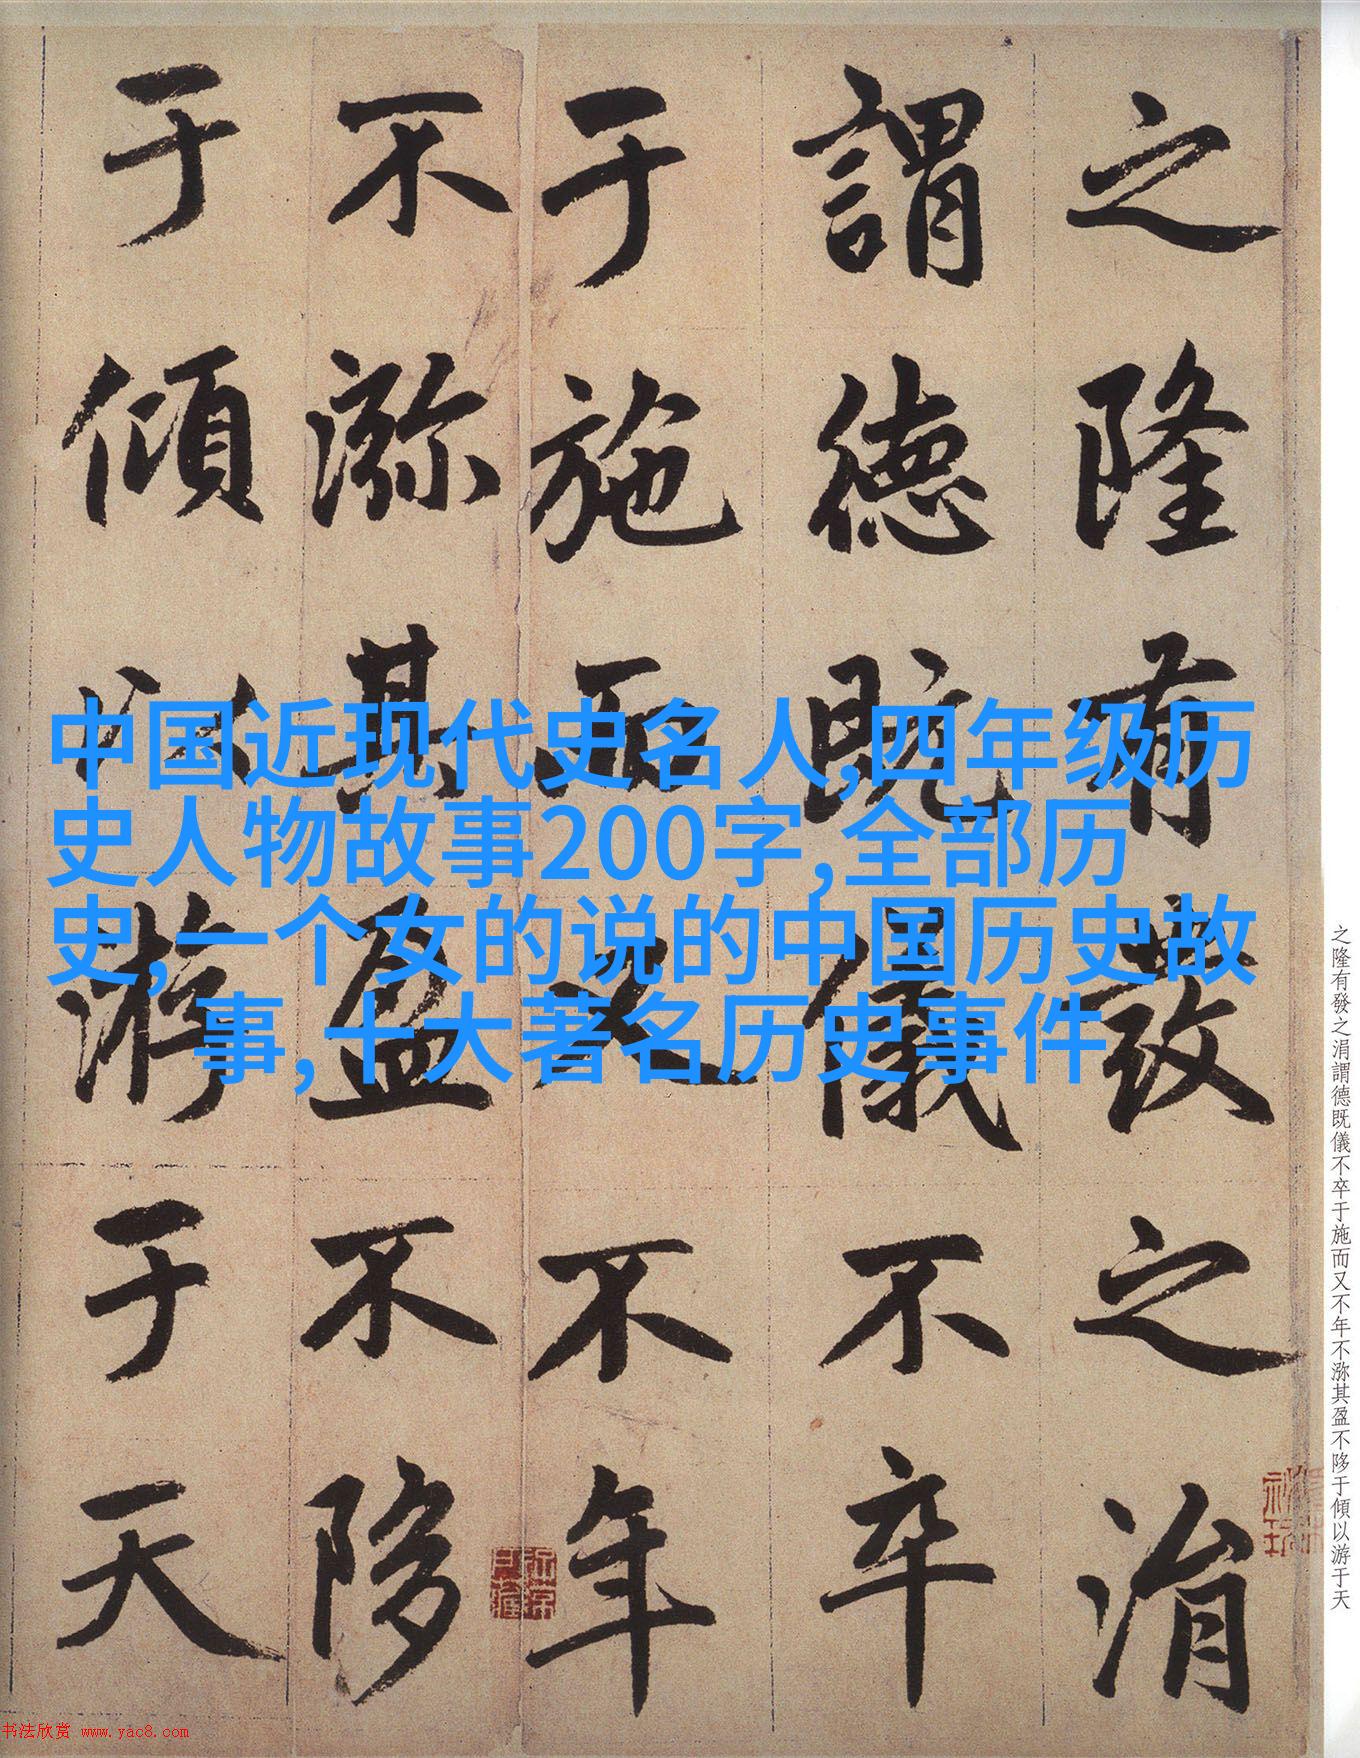 之隆有發之涓
謂德既儀不卒
于施而又不年
不渺其盈不陊
于傾以游于天
中国近现代史名人,四年级历
史人物故事200字,全部历
史,一个女的说的中国历史故
事,十大著名历史事件
之隆有發之涓謂德既儀不卒于施而又不年不渺其盈不陊于傾以游于天
书法欣赏 www.yac8.com